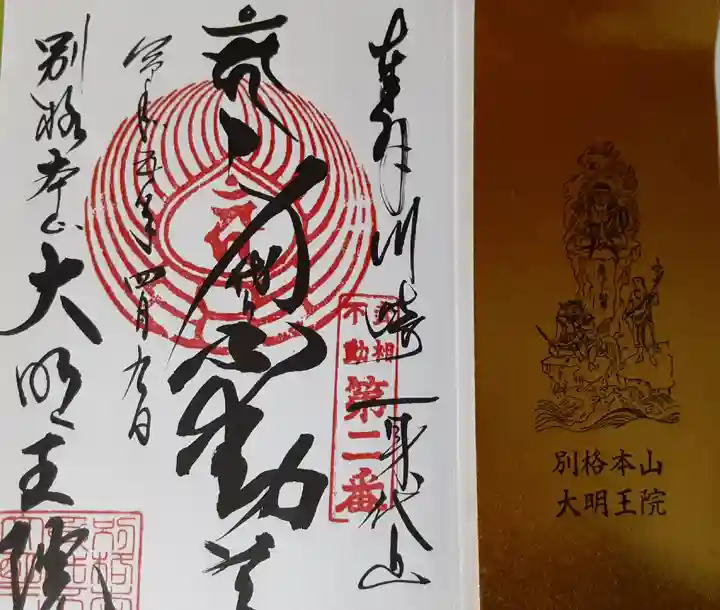 奉拝 川崎 身代山
身代り不動尊
令和五年四月九日
別格本山 大明王院
武相
不動
第二番
別格本山
大明王院